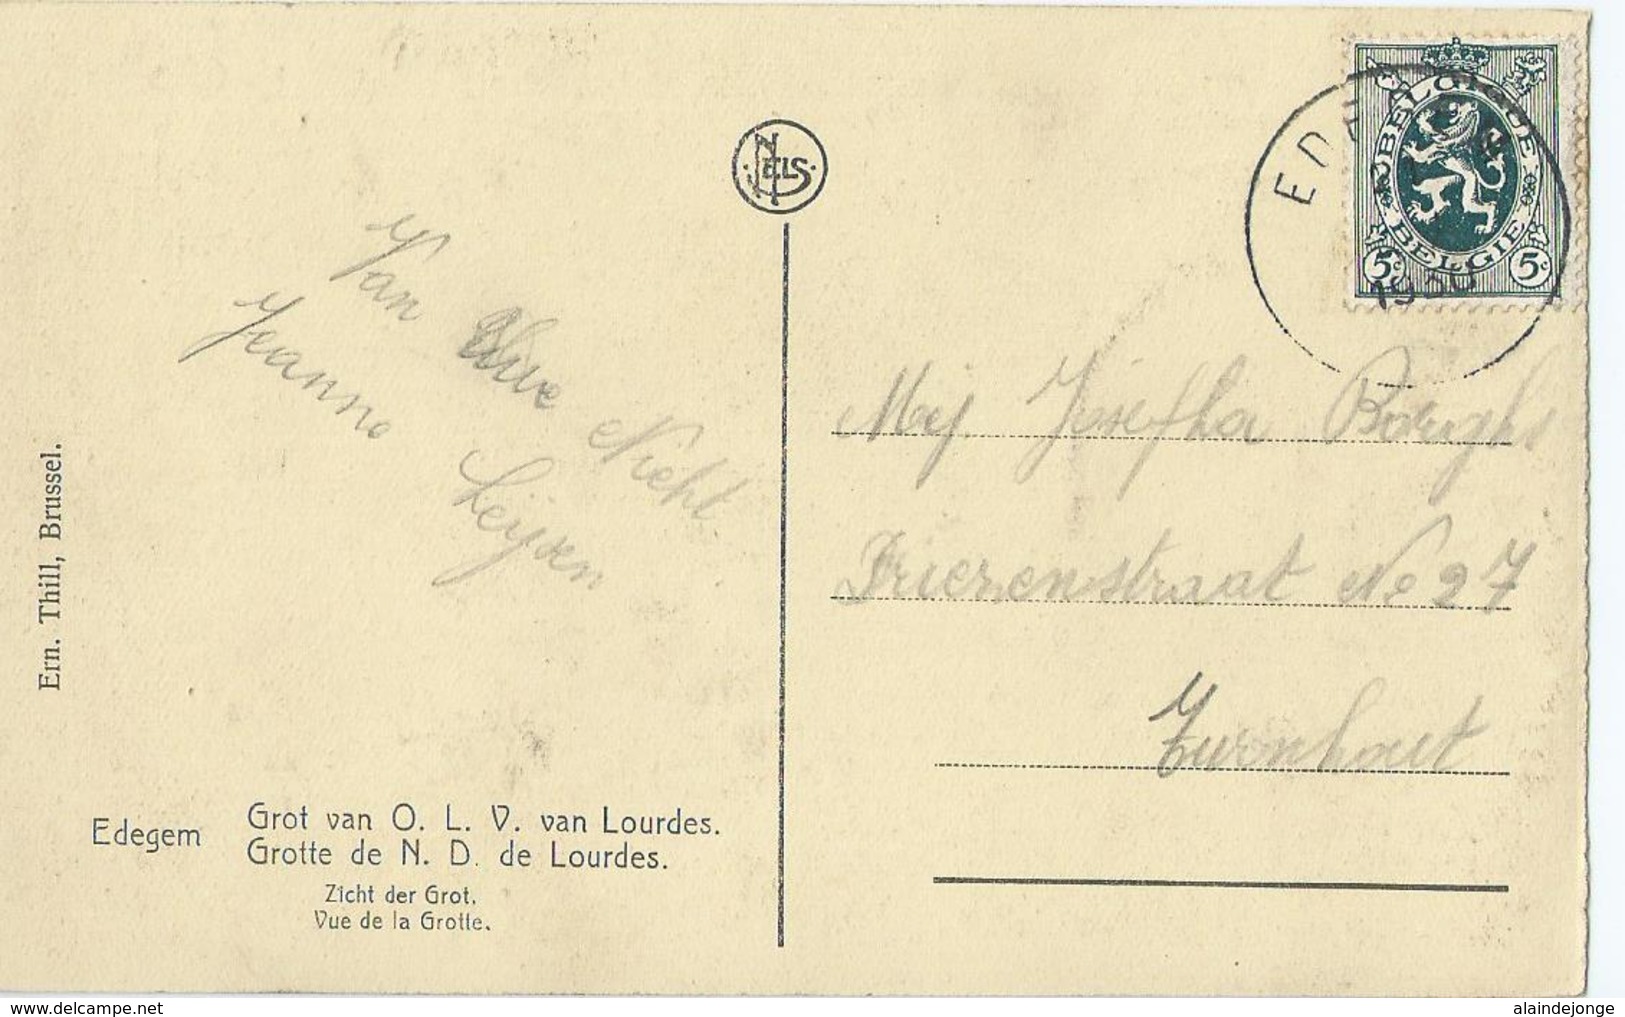 NELS
BELGIQUE
BELGIE
5c 5c
1930
Van Uwe Nicht
Jeanne Leijsen
Mej. Josepha Borghs
Driezenstraat No 27
Turnhout
Ern. Thill, Brussel.
Edegem
Grot van O. L. V. van Lourdes.
Grotte de N. D. de Lourdes.
Zicht der Grot.
Vue de la Grotte.
www.delcampe.net
alaindejonge